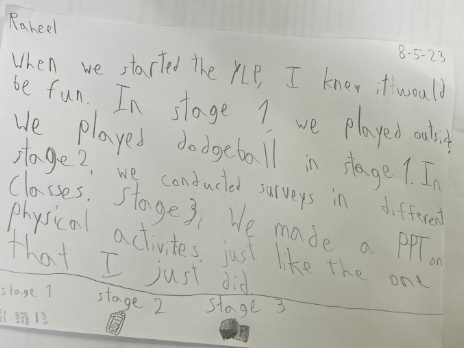 Raheel
8-5-23
When we started the YLP, I knew it would
be fun. In stage 1, we played outside.
We played dodgeball in stage 1. In
stage 2, we conducted surveys in different
classes. stage 3, We made a PPT on
physical activites just like the one
that I just did
stage 1 stage 2 stage 3